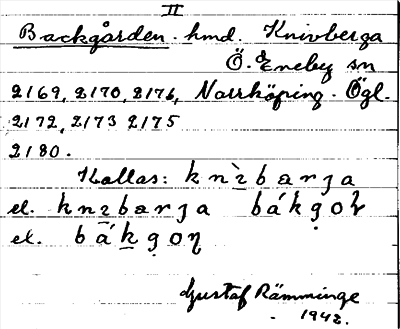 II
Backgården. hmd. Knivberga
Ö. Eneby sn
2169, 2170, 2176, Norrköping. Ögl.
2172, 2173 2175
2180.
Kallas:
el.
el.
Gustaf Rämminge
1942.